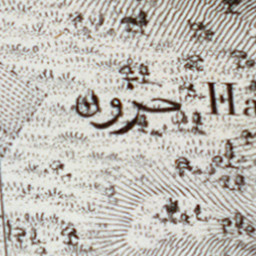 حرون Ha